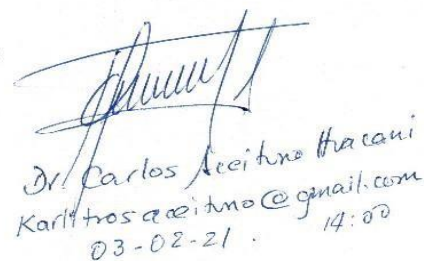 Dr. Carlos Aceituno Huacani
Karlitrosaceituno@gmail.com
03-02-21. 14:00